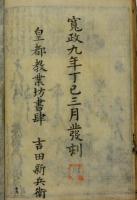 寛政九年丁巳三月発刻
皇都教業坊書肆
吉田新兵衛